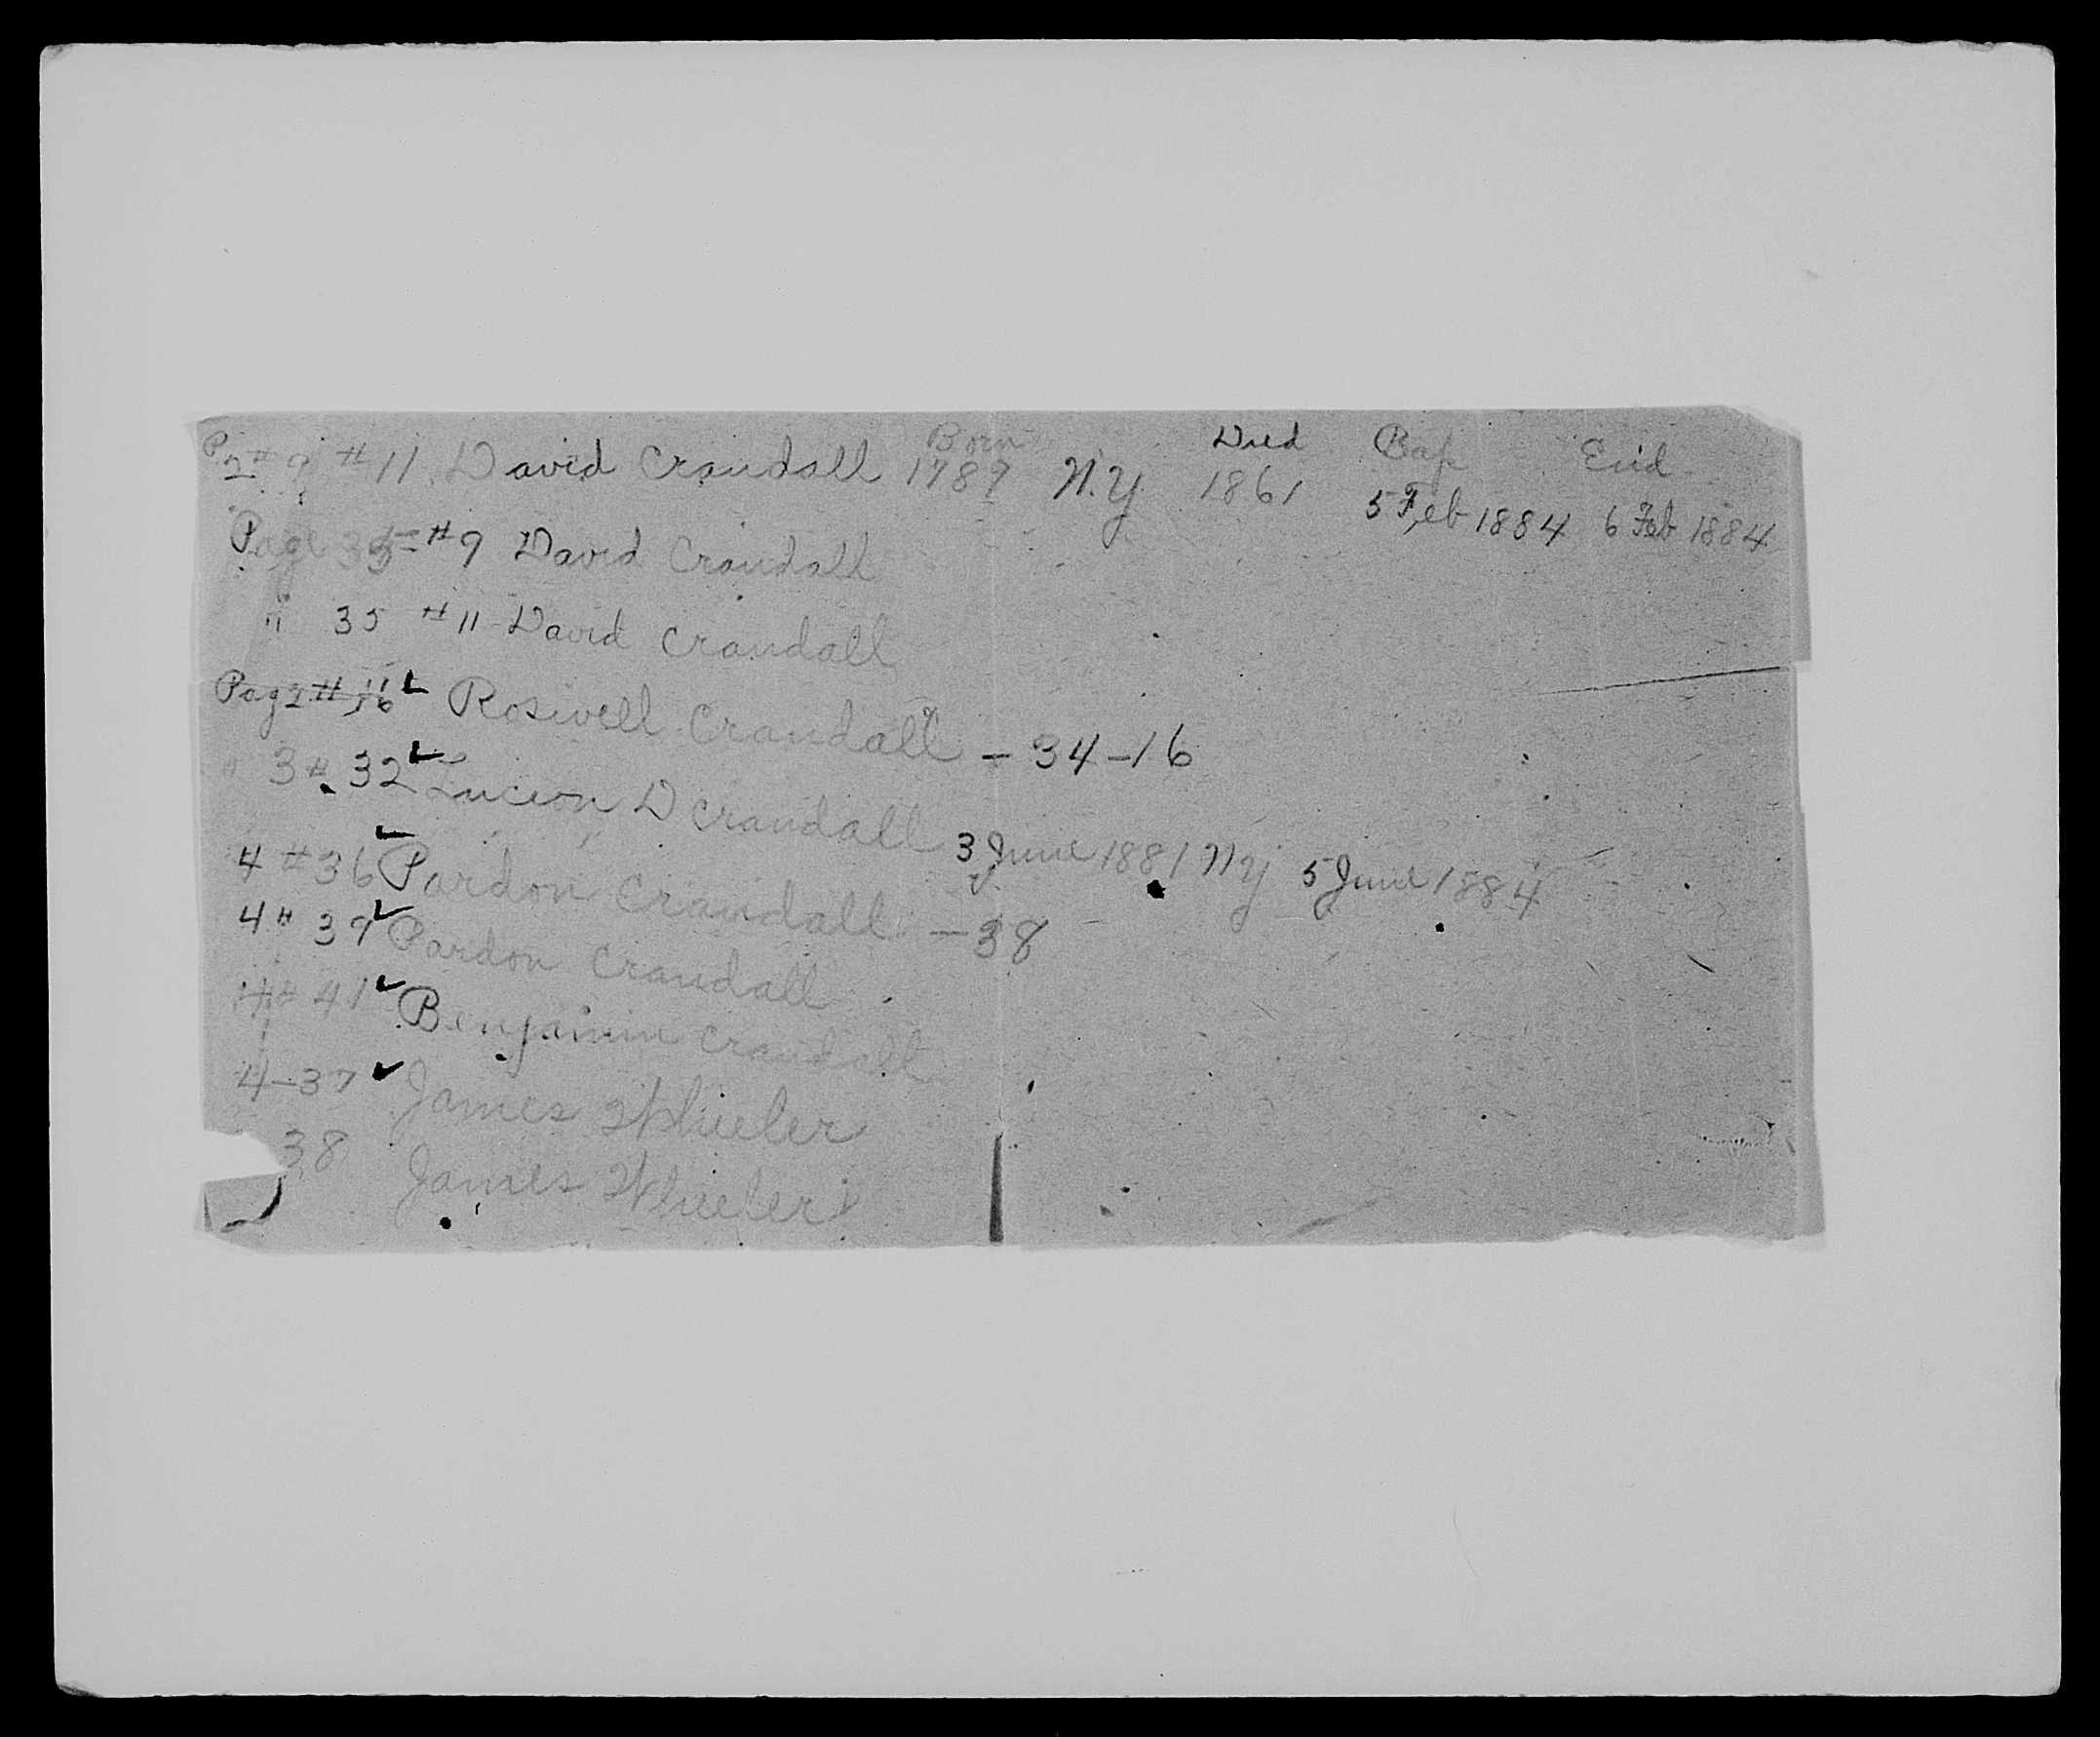 Born Died Bap End
P. 2 # 9 # 11 David Crandall 1789 N.Y. 1861 5 Feb 1884 6 Feb 1884
Page 35 # 9 David Crandall
" 35 # 11 David Crandall
Pag 2 # 16 ✓ Roswell Crandall - 34-16
" 3 # 32 ✓ Lucion D Crandall 3 June 1881 NY 5 June 1884
4 # 36 ✓ Pardon Crandall - 38
4 # 39 ✓ Pardon Crandall
4 # 41 ✓ Benjamin Crandall
4-37 ✓ James Wheeler
38 James Wheeler